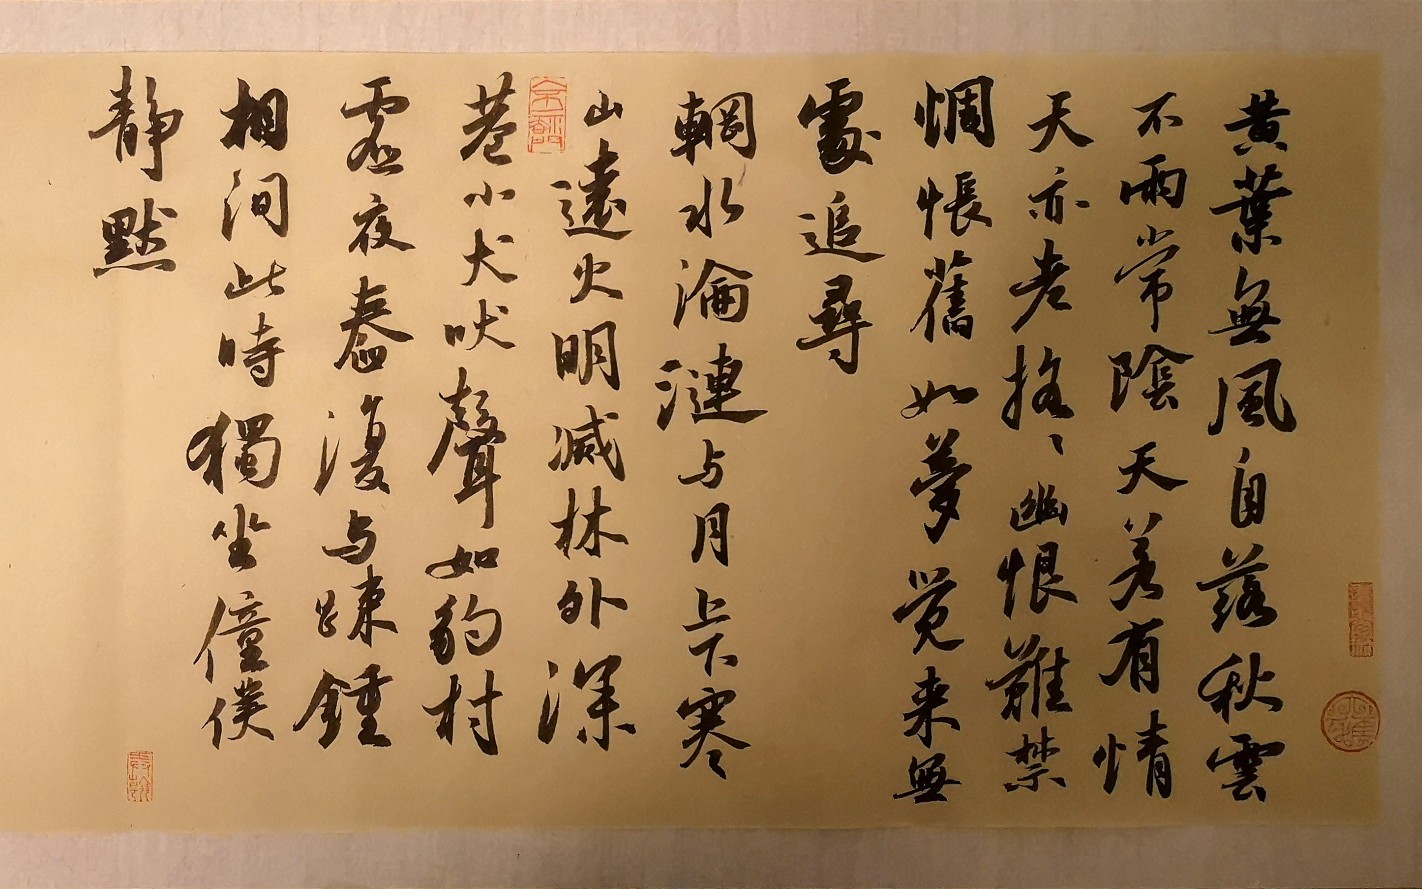 黄葉無風自落秋雲
不雨常陰天若有情
天亦老摇〻幽恨難禁
惆悵舊如夢觉来無
處追尋
輞水淪漣与月上下寒
山遠火明滅林外深
巷小犬吠聲如豹村
虛夜舂復与踈鍾
相间此時獨坐僮僕
静默